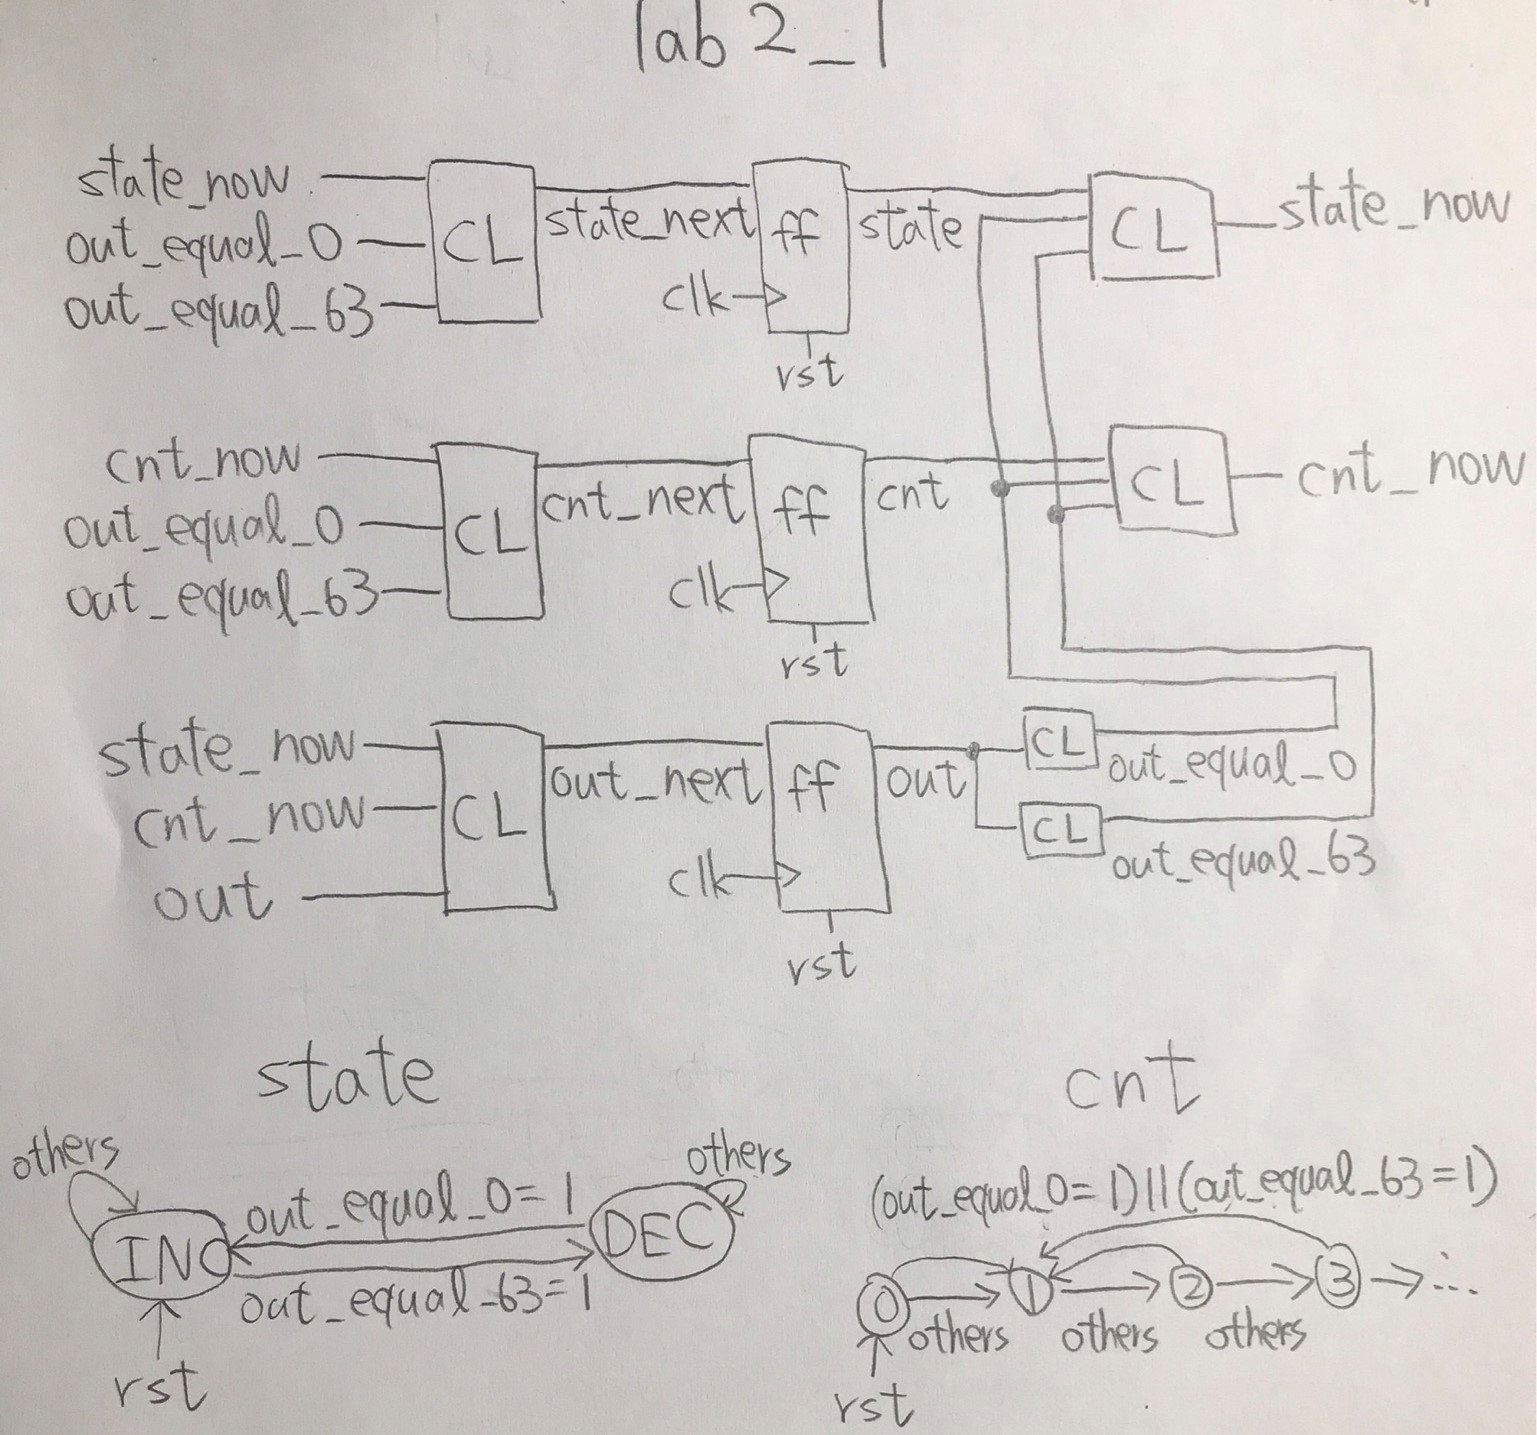 lab 2_1
state_now
out_equal_0
out_equal_63
CL
state_next
ff
clk
rst
state
CL
state_now
cnt_now
out_equal_0
out_equal_63
CL
cnt_next
ff
clk
rst
cnt
CL
cnt_now
state_now
cnt_now
out
CL
out_next
ff
clk
rst
out
CL
out_equal_0
CL
out_equal_63
state
others
INC
out_equal_0=1
out_equal_63=1
DEC
others
rst
cnt
(out_equal_0=1)||(out_equal_63=1)
0
1
2
3
...
others
others
others
rst